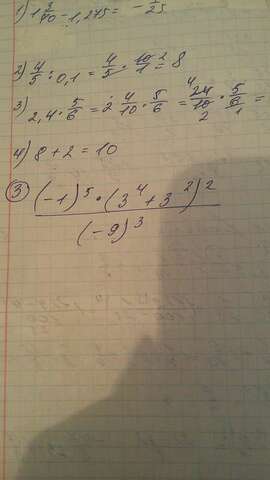 1) 1 3/40 - 1,275 = - 1/25
2) 4/5 : 0,1 = 4/5 · 10/1 = 8
3) 2,4 · 5/6 = 2 4/10 · 5/6 = 24/10 · 5/6 =
4) 8 + 2 = 10
③ (-1)⁵ · (3⁴ + 3²)²
(-9)³